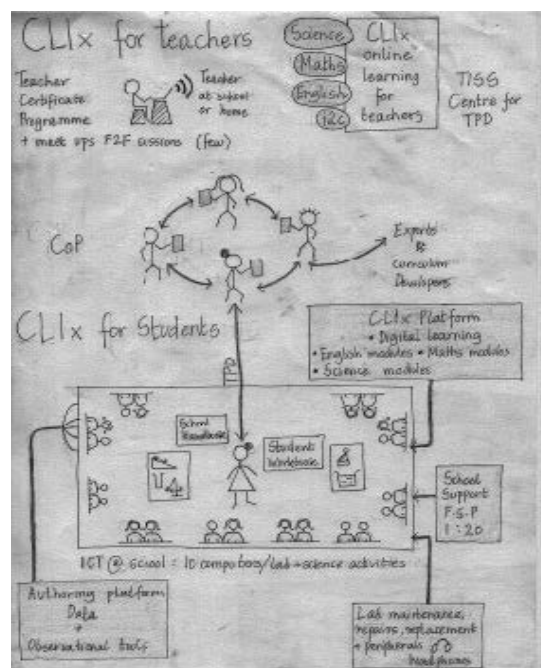 CLIx for teachers
Teacher
Certificate
Programme
+ meet ups F2F sessions (few)
Teacher
at school
or home
Science
Maths
English
i2c
CLIx
online
learning
for
teachers
TISS
Centre for
TPD
CoP
Experts
&
curriculum
Developers
CLIx for Students
TPD
CLIx Platform
• Digital learning
• English modules • Maths modules
• Science modules
School
Handbook
Students
Workbook
School
Support
F.S.P
1:20
ICT @ school = 10 computers/Lab + science activities
Authoring platform
Data
+
Observational tools
Lab maintenance,
repairs, replacement
+ peripherals
headphones